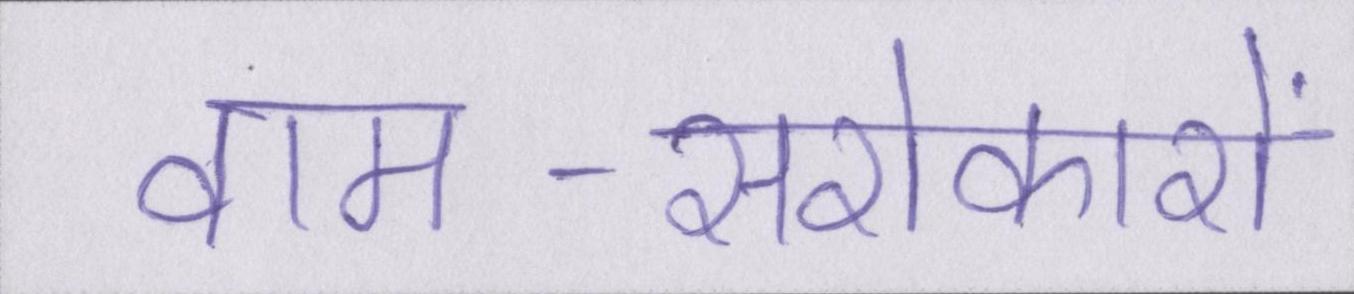 वाम-सरोकारों